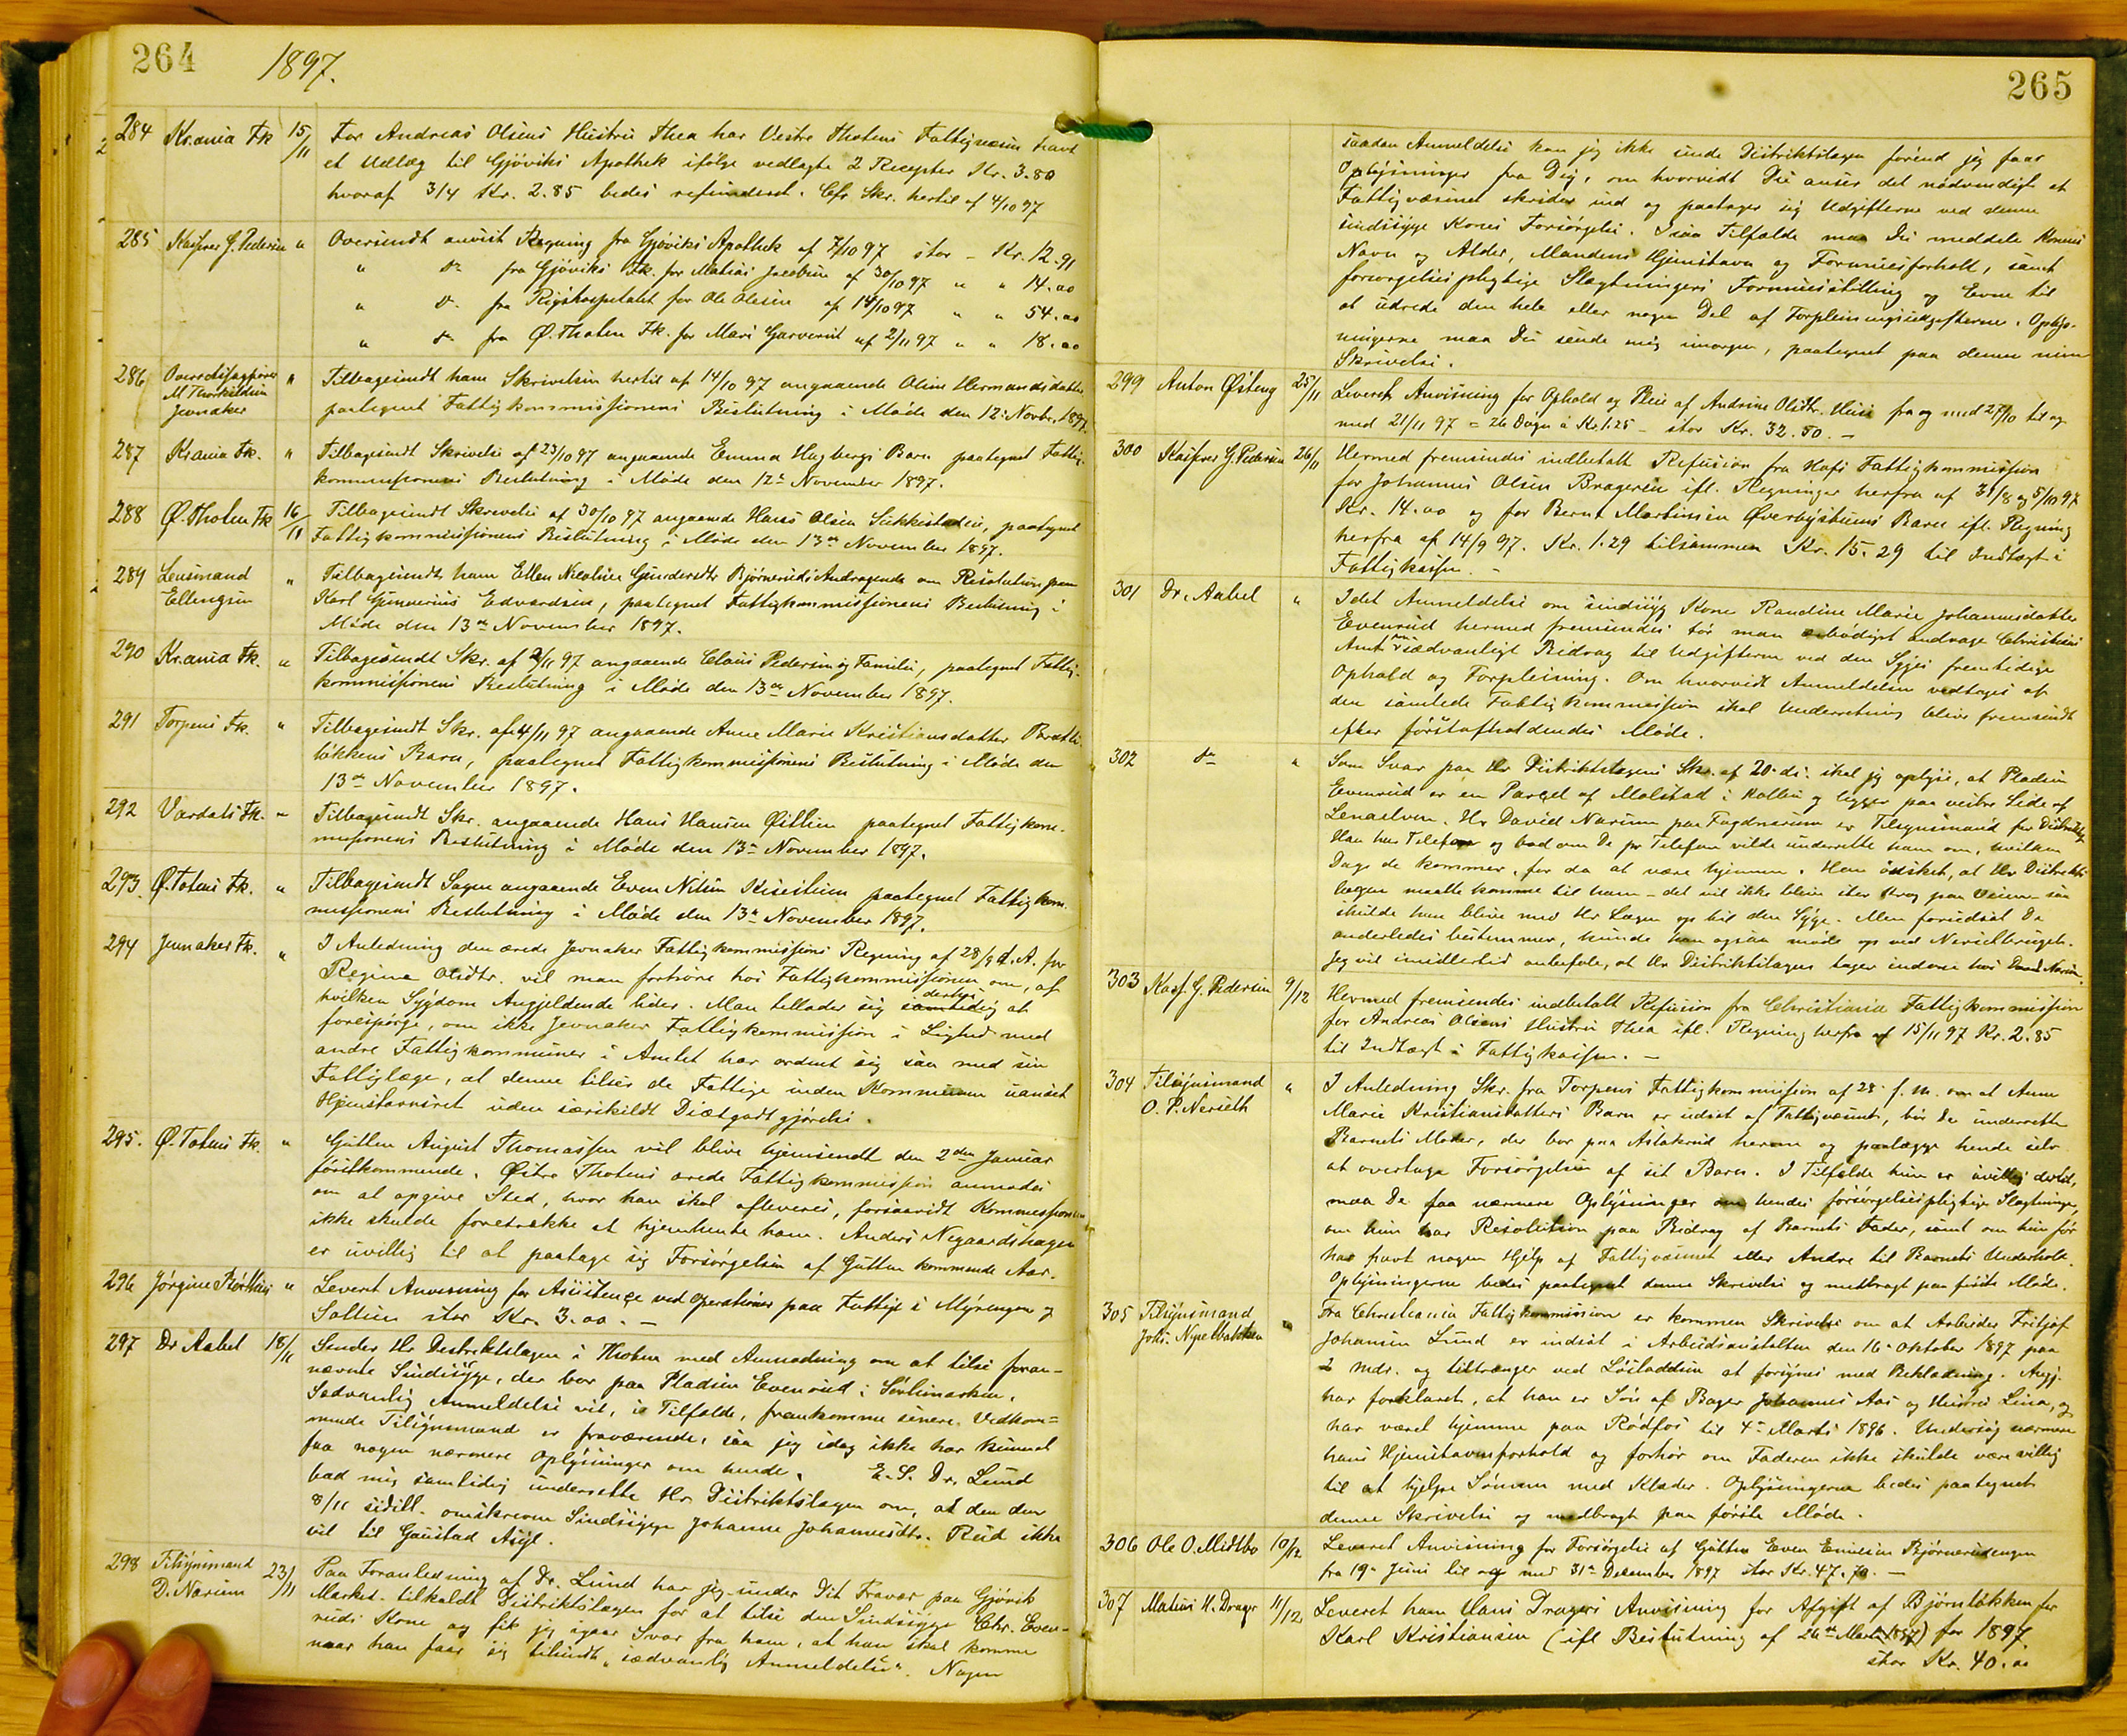 264 1897.
284 Kr.ania Fk 15/11 For Andreas Olsens Hustru Thea har Vestre Thotens Fattigvæsen havt
et Udlæg til Gjøviks Apothek ifølge vedlagte 2 Recepter Kr. 3.80
hvoraf 3/4 Kr. 2.85 bedes refunderet. Cfr Skr. hertil af 4/10 97
285 Kasserer G. Pedersen " Oversendt anvist Regning fra Gjøviks Apothek af 7/10 97 stor - Kr. 12.91
" do fra Gjøviks Fk. for Matias Jacobsen af 30/10 97 " " 14.00
" do fra Rigshospitalet for Ole Olsen af 14/10 97 " " 54.00
" do fra Ø. Thoten Fk. for Mari Garverud af 2/11 97 " " 18.00
286 Overretssagfører M Thorkildsen Jevnaker " Tilbagesendt ham Skrivelsen hertil af 14/10 97 angaaende Oline Hermandsdatter,
paategnet Fattigkommissionens Beslutning i Møde den 12. Novbr. 1897.
287 Kr.ania Fk. " Tilbagesendt Skrivelse af 23/10 97 angaaende Emma Hagbergs Barn paategnet Fattig-
kommissionens Beslutning i Møde den 12te November 1897.
288 Ø. Thoten Fk 16/11 Tilbagesendt Skrivelse af 30/10 97 angaaende Hans Olsen Sukkestadeie, paategnet
Fattigkommissionens Beslutning i Møde den 13de November 1897.
289 Lensmand Ellengsen " Tilbagesendt ham Ellen Nicoline Gundersdtr Bjørnerud's Andragende om Resolution paa
Karl Gunnerius Edvardsen, paategnet Fattigkommissionens Beslutning i
Møde den 13de November 1897.
290 Kr.ania Fk. " Tilbagesendt Skr. af 2/11 97 angaaende Claus Pedersen og Familie, paategnet Fattig-
kommissionens Beslutning i Møde den 13de November 1897.
291 Torpens Fk. " Tilbagesendt Skr. af 4/11 97 angaaende Anne Marie Kristiansdatter Bratli-
løkkens Barn, paategnet Fattigkommissionens Beslutning i Møde den
13de November 1897.
292 Vardals Fk. " Tilbagesendt Skr. angaaende Hans Hansen Østlien paategnet Fattigkom-
missionens Beslutning i Møde den 13de November 1897.
293 Ø. Totens Fk. " Tilbagesendt Sagen angaaende Even Nilsen paategnet Fattigkom-
missionens Beslutning i Møde den 13de November 1897.
294 Jevnaker Fk. " I Anledning den ærede Jevnaker Fattigkommissions Regning af 28/9 d. A. for
Regine Olsdtr. vil man forhøre hos Fattigkommissionen om, af
hvilken Sygdom Angjeldende lider. Man tillader sig samtidig derhos at
forespørge, om ikke Jevnaker Fattigkommission i Lighed med
andre Fattigkommuner i Amtet har ordnet sig saa med sin
Fattiglæge, at denne tilser de Fattige inden Kommunen uanset
Hjemstavnsret uden særskildt Diætgodtgjørelse.
295. Ø. Totens Fk. " Gutten August Thomassen vil blive hjemsendt den 2den Januar
førstkommende. Østre Thotens ærede Fattigkommission anmodes
om at opgive Sted, hvor han skal afleveres, forsaavidt Kommissionen
ikke skulde foretrække at hjemhente ham. Anders Nygaardshagen
er uvillig til at paatage sig Forsørgelsen af Gutten kommende Aar.
296 Jørgine " Leveret Anvisning for Assistence ved Operationer paa Fattige i Myrengen og
Sollien stor Kr. 3.00. —
297 Dr Aabel 18/11 Sender Hr Destriktslægen i Thoten med Anmodning om at tilse foran-
nævnte Sindssyge, der bor paa Pladsen Evenrud i Sørlimarken.
Sædvanlig Anmeldelse vil, i Tilfælde, fremkomme senere. Vedkom=
mende Tilsynsmand er fraværende, saa jeg idag ikke har kunnet
faa nogen nærmere Oplysninger om hende. E. S. Dr. Lund
bad mig samtidig underrette Hr Distriktslægen om, at den den
8/11 sidstl. omskrevne Sindssyge Johanne Johannesdtr. Rud ikke
vil til Gaustad Asyl.
298 Tilsynsmand D. Narum 23/11 Paa Foranledning af Dr. Lund har jeg under Dit Fravær paa Gjøvik
Marked tilkaldt Distriktslægen for at tilse den Sindssyge Chr. Even-
ruds Kone og fik jeg igaar Svar fra ham, at han skal komme
naar han faar sig tilsendt „sædvanlig Anmeldelse". Nogen
265
saadan Anmeldelse kan jeg ikke sende Distriktslægen førend jeg faar
Oplysninger fra Dig, om hvorvidt Du anser det nødvendigt at
Fattigvæsenet skrider ind og paatager sig Udgifterne ved denne
sindssyge Kones Forsørgelse. I saa Tilfælde maa Du meddele Konens
Navn og Alder, Mandens Hjemstavn og Formuesforhold, samt
forsørgelsespligtige Slægtningers Formuesstilling og Evne til
at udrede den hele eller nogen Del af Forpleiningsudgifterne. Oplys-
ningerne maa Du sende mig imorgen, paategnet paa denne min
Skrivelse.
299 Anton Østeng 25/11 Leveret Anvisning for Ophold og Pleie af Andrine Olsdtr. Huse fra og med 27/10 til og
med 21/11 97 = 26 Døgn à Kr. 1.25 - stor Kr. 32.50. —
300 Kasserer G. Pedersen 26/11 Hermed fremsendes indbetalt Refusion fra Hofs Fattigkommission
for Johannes Olsen Brageren ifl. Regninger herfra af 31/8 og 5/10 97
Kr. 14.00 og for Bernt Martinsen Øverbyshuus Barn ifl. Regning
herfra af 14/9 97. Kr. 1.29 tilsammen Kr. 15.29 til Indtægt i
Fattigkassen. —
301 Dr. Aabel " Idet Anmeldelse om sindssyg Kone Randine Marie Johannesdatter
Evenrud hermed fremsendes tør man ærbødigst andrage Christians
Amt om sædvanligt Bidrag til Udgifterne ved den Syges fremtidige
Ophold og Forpleining. Om hvorvidt Anmeldelsen vedtages af
den samlede Fattigkommission skal Underretning blive fremsendt
efter førstafholdendes Møde.
302 do " Som Svar paa Hr Distriktslægens Skr. af 20. ds. skal jeg oplyse, at Pladsen
Evenrud er en Parcel af Malstad i Kolbu og ligger paa vestre Side af
Lenaelven. Hr David Narum paa Fagdnarum er Tilsynsmand for Distriktet.
Han har Telefon og bad om De pr Telefon vilde underrette ham om, hvilken
Dag de kommer, for da at være hjemme. Han ønsket, at Hr Distrikts-
lægen maatte komme til ham - det vil ikke blive stor Krog paa Veien - saa
skulde han blive med Hr Lægen op til den Syge. Men forudsat De
anderledes bestemmer, kunde han ogsaa møde op ved Nersetbrugets.
Jeg vil imidlertid anbefale, at Hr Distriktslægen tager indom hos David Narum.
303 Kass. G. Pedersen 9/12 Hermed fremsendes indbetalt Refusion fra Christiania Fattigkommission
for Andreas Olsens Hustru Thea ifl. Regning herfra af 15/11 97 Kr. 2.85
til Indtægt i Fattigkassen. —
304 Tilsynsmand O. P. Nerseth " I Anledning Skr. fra Torpens Fattigkommission af 28. f. m. om at Anne
Marie Kristiansdatters Barn er udsat af Fattigvæsenet, bør De underrette
Barnets Moder, der bor paa Aslakrud herom og paalægge hende selv
at overtage Forsørgelsen af sit Barn. I Tilfælde hun er uvillig dertil,
maa De faa nærmere Oplysninger om hendes forsørgelsespligtige Slægtninge,
om hun har Resolution paa Bidrag af Barnets Fader, samt om hun før
har havt nogen Hjelp af Fattigvæsenet eller Andre til Barnets Underhold.
Oplysningerne bedes paategnet denne Skrivelse og medbragt paa første Møde.
305 Tilsynsmand Johs. " Fra Christiania Fattigkommission er kommen Skrivelse om at Arbeider Fritjof
Johansen Lund er indsat i Arbeidsanstalten den 16. Oktober 1897 paa
2 Mdr. og tiltrænger ved Løsladelsen at forsynes med Beklædning. Angj.
har forklaret, at han er Søn af Bager Johannes Aas og Hustru Lina, og
har været hjemme paa Rødfos til 4. Marts 1896. Undersøg nærmere
hans Hjemstavnsforhold og forhør om Faderen ikke skulde være villig
til at hjelpe Sønnen med Klæder. Oplysningerne bedes paategnet
denne Skrivelse og medbragt paa første Møde.
306 Ole O. Midtbø 10/12 Leveret Anvisning for Forsørgelse af Gutten Even Emilsen Bjørnerudengen
fra 19. Juni til og med 31te December 1897 stor Kr. 47.70. —
307 Matias H. Drager 11/12 Leveret ham Hans Dragers Anvisning for Afgift af Bjørnløkken for
Karl Kristiansen (ifl Beslutning af 26de Marts 1897) for 1897.
stor Kr. 40.00